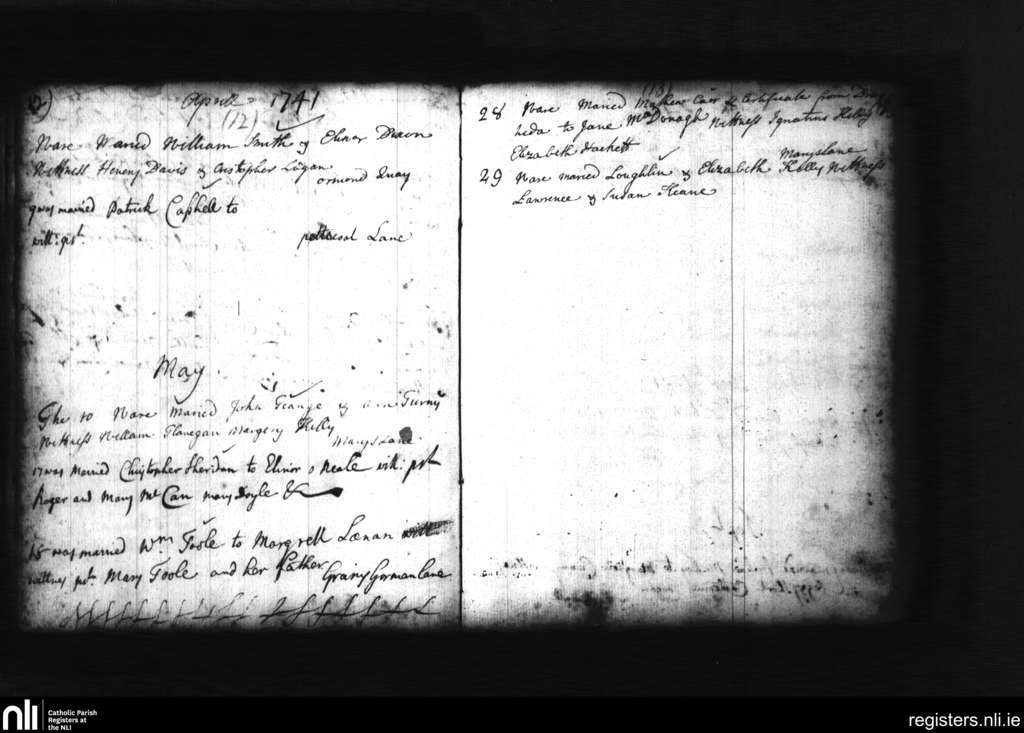 Aprill 1741
(12)
Ware Maried William Smith & Elinor Dixon
Wittness Henery Davis & Cristopher Logan
ormond Quay
9 was married Patrick Cashell to
witt: pst.
Lane
May
The 10 Ware Maried John & Turny
Wittness William Flanegan Margery Kelly
Marys Lane
17 was Married Christopher Sheridan to Elinor o Neale witt: pst
Roger and Mary Mc Can Mary Doyle &c
18 was married Wm Toole to Margrell Lænan
wittness pst. Mary Toole and her father
Grainy Gorman lane
(13)
28 Ware Maried Mathew Carr & Certificate from
heda to Jane McDonogh Wittness Ignatius Kelly
Elizabeth Hackett
Marys lane
29 Ware maried Loughlin & Elizabeth Kelly Wittness
Lawrence & Susan Keane
nli
Catholic Parish
Registers at
the NLI
registers.nli.ie